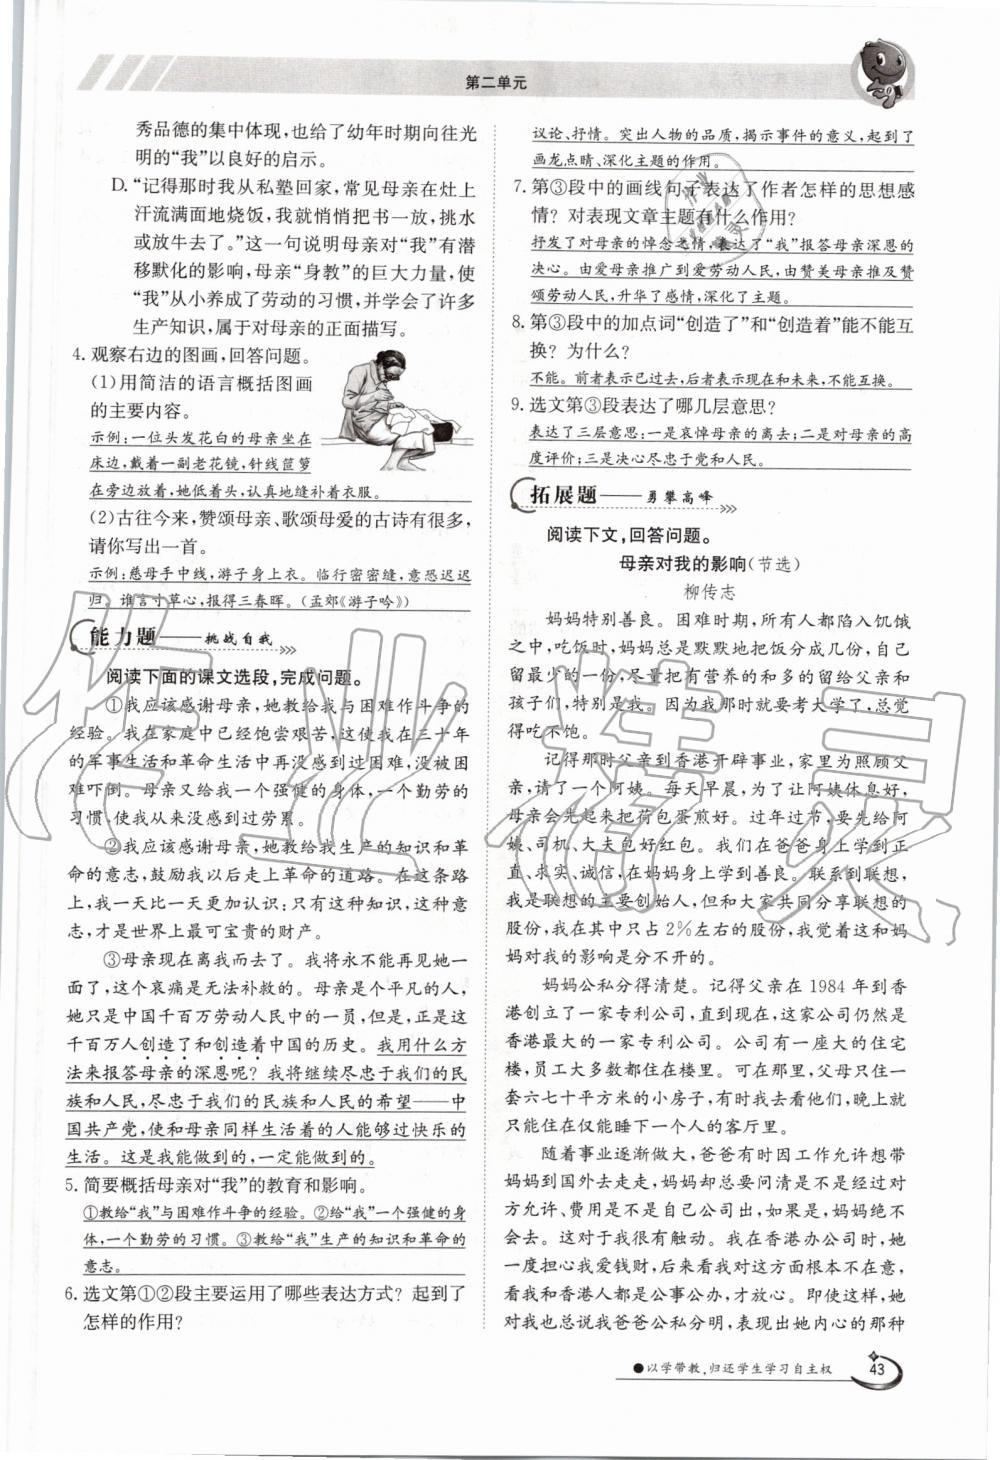 第二单元
秀品德的集中体现,也给了幼年时期向往光
明的“我”以良好的启示。
D.“记得那时我从私塾回家,常见母亲在灶上
汗流满面地烧饭,我就悄悄把书一放,挑水
或放牛去了。”这一句说明母亲对“我”有潜
移默化的影响,母亲“身教”的巨大力量,使
“我”从小养成了劳动的习惯,并学会了许多
生产知识,属于对母亲的正面描写。
4. 观察右边的图画,回答问题。
(1)用简洁的语言概括图画
的主要内容。
示例:一位头发花白的母亲坐在
床边,戴着一副老花镜,针线笸箩
在旁边放着,她低着头,认真地缝补着衣服。
(2)古往今来,赞颂母亲、歌颂母爱的古诗有很多,
请你写出一首。
示例:慈母手中线,游子身上衣。临行密密缝,意恐迟迟
归。谁言寸草心,报得三春晖。(孟郊《游子吟》)
能力题——挑战自我
阅读下面的课文选段,完成问题。
①我应该感谢母亲,她教给我与困难作斗争的
经验。我在家庭中已经饱尝艰苦,这使我在三十年
的军事生活和革命生活中再没感到过困难,没被困
难吓倒。母亲又给我一个强健的身体,一个勤劳的
习惯,使我从来没感到过劳累。
②我应该感谢母亲,她教给我生产的知识和革
命的意志,鼓励我以后走上革命的道路。在这条路
上,我一天比一天更加认识:只有这种知识,这种意
志,才是世界上最可宝贵的财产。
③母亲现在离我而去了。我将永不能再见她一
面了,这个哀痛是无法补救的。母亲是个平凡的人,
她只是中国千百万劳动人民中的一员,但是,正是这
千百万人创造了和创造着中国的历史。我用什么方
法来报答母亲的深恩呢?我将继续尽忠于我们的民
族和人民,尽忠于我们的民族和人民的希望——中
国共产党,使和母亲同样生活着的人能够过快乐的
生活。这是我能做到的,一定能做到的。
5. 简要概括母亲对“我”的教育和影响。
①教给“我”与困难作斗争的经验。②给“我”一个强健的身
体,一个勤劳的习惯。③教给“我”生产的知识和革命的
意志。
6. 选文第①②段主要运用了哪些表达方式?起到了
怎样的作用?
议论、抒情。突出人物的品质,揭示事件的意义,起到了
画龙点睛、深化主题的作用。
7. 第③段中的画线句子表达了作者怎样的思想感
情?对表现文章主题有什么作用?
抒发了对母亲的悼念之情,表达了“我”报答母亲深恩的
决心。由爱母亲推广到爱劳动人民,由赞美母亲推及赞
颂劳动人民,升华了感情,深化了主题。
8. 第③段中的加点词“创造了”和“创造着”能不能互
换?为什么?
不能。前者表示已过去,后者表示现在和未来,不能互换。
9. 选文第③段表达了哪几层意思?
表达了三层意思:一是哀悼母亲的离去;二是对母亲的高
度评价;三是决心尽忠于党和人民。
拓展题——勇攀高峰
阅读下文,回答问题。
母亲对我的影响(节选)
柳传志
妈妈特别善良。困难时期,所有人都沾饥饿
之中,吃饭时,妈妈总是默默地把饭分成几份,自己
留最少的一份,尽量把有营养的和多的留给父亲和
孩子们,特别是我。因为我那时就要考大学了,总觉
得吃不饱。
记得那时父亲到香港开辟事业,家里为照顾父
亲,请了一个阿姨。每天早晨,为了让阿姨休息好,
母亲会先起来把荷包蛋煎好。过年过节,要先给阿
姨、司机、大夫包好红包。我们在爸爸身上学到正
直、求实、诚信,在妈妈身上学到善良。联系到联想,
我是联想的主要创始人,但和大家共同分享联想的
股份,我在其中只占2%左右的股份,我觉着这和妈
妈对我的影响是分不开的。
妈妈公私分得清楚。记得父亲在1984年到香
港创立了一家专利公司,直到现在,这家公司仍然是
香港最大的一家专利公司。公司有一座大的住宅
楼,员工大多数都住在楼里。可是,父母只住一
套六七十平方米的小房子,有时我到香港出差,就
只能住在仅能睡下一个人的客厅里。
随着事业逐渐做大,爸爸有时因工作允许想带
妈妈到国外去走走,妈妈却总要问清是不是对
方允许、费用是不是自己公司出,如果是,妈妈绝不
会去。这对于我很有触动。我在香港办公司时,她
一度担心我爱钱财,后来看我对这方面根本不在意,
看我和香港人都是公事公办,才放心。即使这样,她
对我也总说我爸爸公私分明,表现出她内心的那种
●以学带教,归还学生学习自主权
43